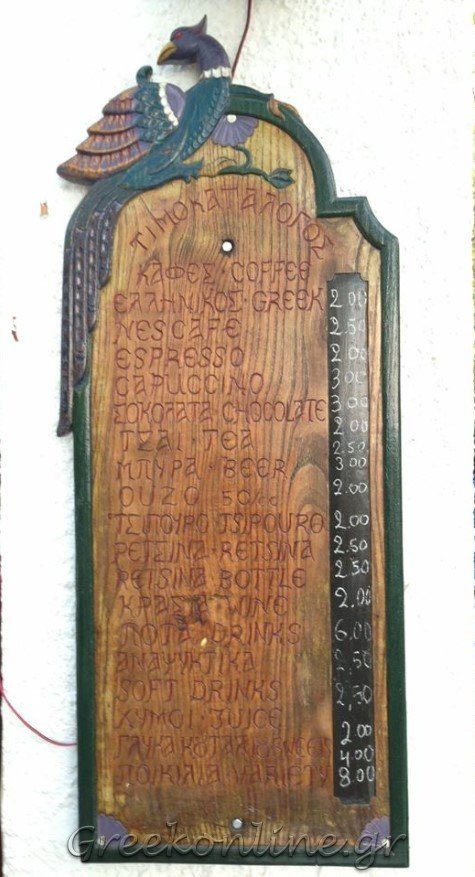 ΤΙΜΟΚΑΤΑΛΟΓΟΣ
ΚΑΦΕΣ·COFFEE
ΕΛΛΗΝΙΚΟΣ·GREEK 2.00
NESCAFE 2.50
ESPRESSO 2.00
CAPUCCINO 3.00
ΣΟΚΟΛΑΤΑ·CHOCOLATE 3.00
ΤΣΑΙ·TEA 2.00
2.50
ΜΠΥΡΑ·BEER 3.00
OUZO 50 2.00
ΤΣΙΠΟΥΡΟ·TSIPOURO 2.00
ΡΕΤΣΙΝΑ·RETSINA 2.50
RETSINA BOTTLE 2.50
ΚΡΑΣΙΑ WINE 2.00
ΠΟΤΑ DRINKS 6.00
ΑΝΑΨΥΚΤΙΚΑ 2.50
SOFT DRINKS 2,50
ΧΥΜΟΙ·JUICE 2.00
ΓΛΥΚΑ ΚΟΥΤΑΛΙΟΥ SWEETS 4.00
ΠΟΙΚΙΛΙΑ VARIETY 8.00
Greekonline.gr